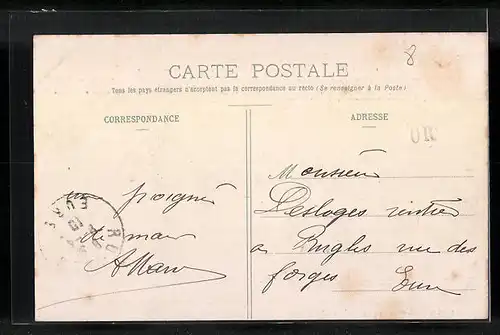 8
CARTE POSTALE
Tous les pays étrangers n'acceptent pas la correspondance au recto (Se renseigner à la Poste)
CORRESPONDANCE
ADRESSE
OR
un poigné
de main
Monsieur
Desloges rentier
a Rugles rue des
forges Eure